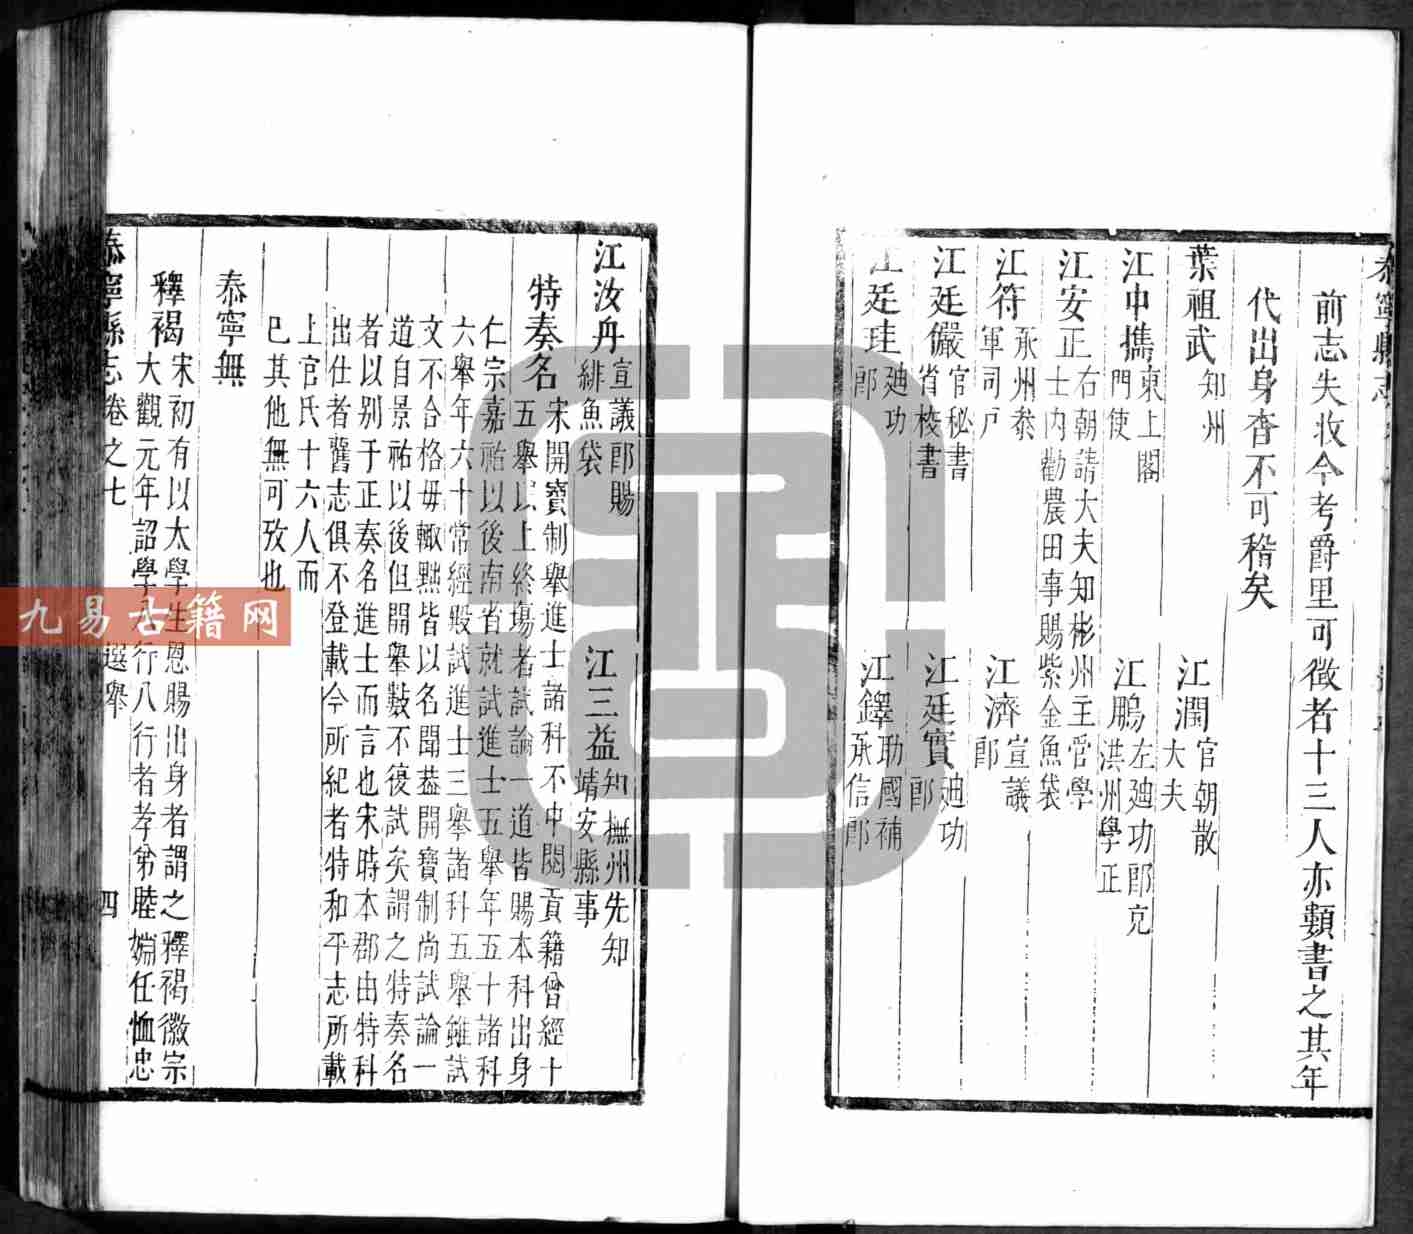 前志失收今考爵里可徵者十三人亦類書之其年
代出身杳不可稽矣
葉祖武知州
江潤官朝散大夫
江中攜東上閣門使
江鵬左廸功郎充洪州學正
江安正右朝請大夫知彬州主管學士内勸農田事賜紫金魚袋
江符承州叅軍司戸
江濟宣議郎
江廷儼官秘書省校書
江廷實廸功郎
江廷珪廸功郎
江鐸助國補承信郎
江汝舟宣議郎賜緋魚袋
江三益知撫州先知靖安縣事
特奏名宋開寶制舉進士諸科不中閱貢籍曾經十
五舉以上終場者試論一道皆賜本科出身
仁宗嘉祐以後南省就試進士五舉年五十諸科
六舉年六十常經殿試進士三舉諸科五舉雖試
文不合格毋輙黜皆以名聞葢開寶制尚試論一
道自景祐以後但開舉數不復試矣謂之特奏名
者以别于正奏名進士而言也宋時本郡由特科
出仕者舊志俱不登載今所紀者特和平志所載
上官氏十六人而
已其他無可攷也
泰寧無
釋褐宋初有以太學生恩賜出身者謂之釋褐徽宗
大觀元年詔學 行八行者孝弟睦婣任恤忠
泰寧縣志卷之七
選舉
四
九易古籍网